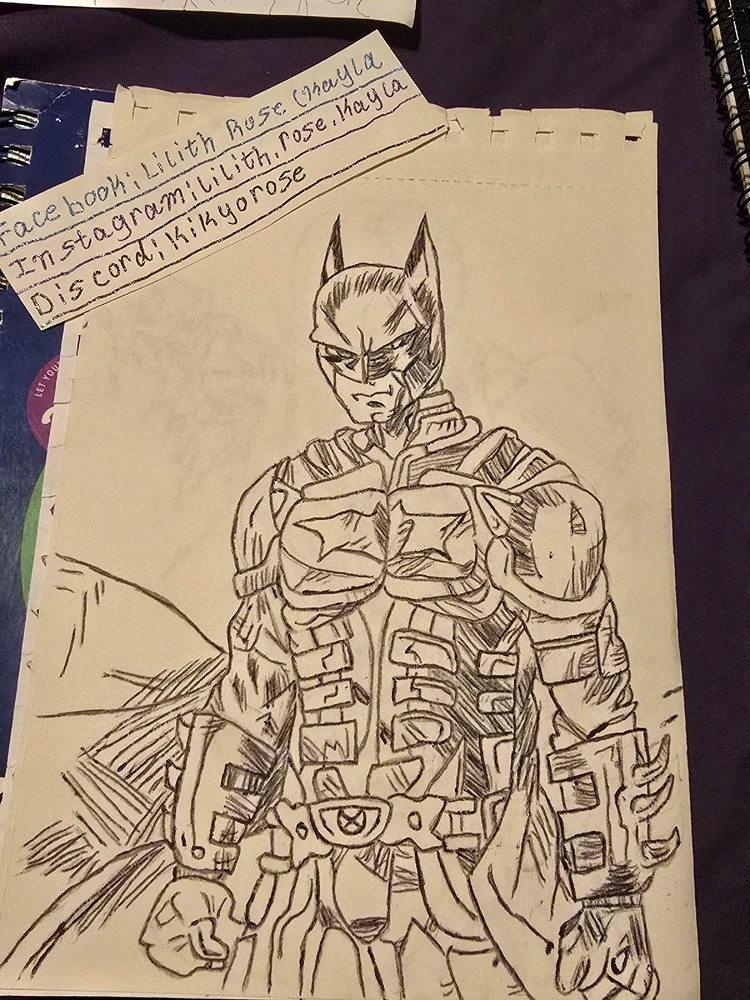 Facebook: Lilith Rose (Kayla
Instagram: lilith.rose.kayla
Discord: Kikyorose
LET YOU